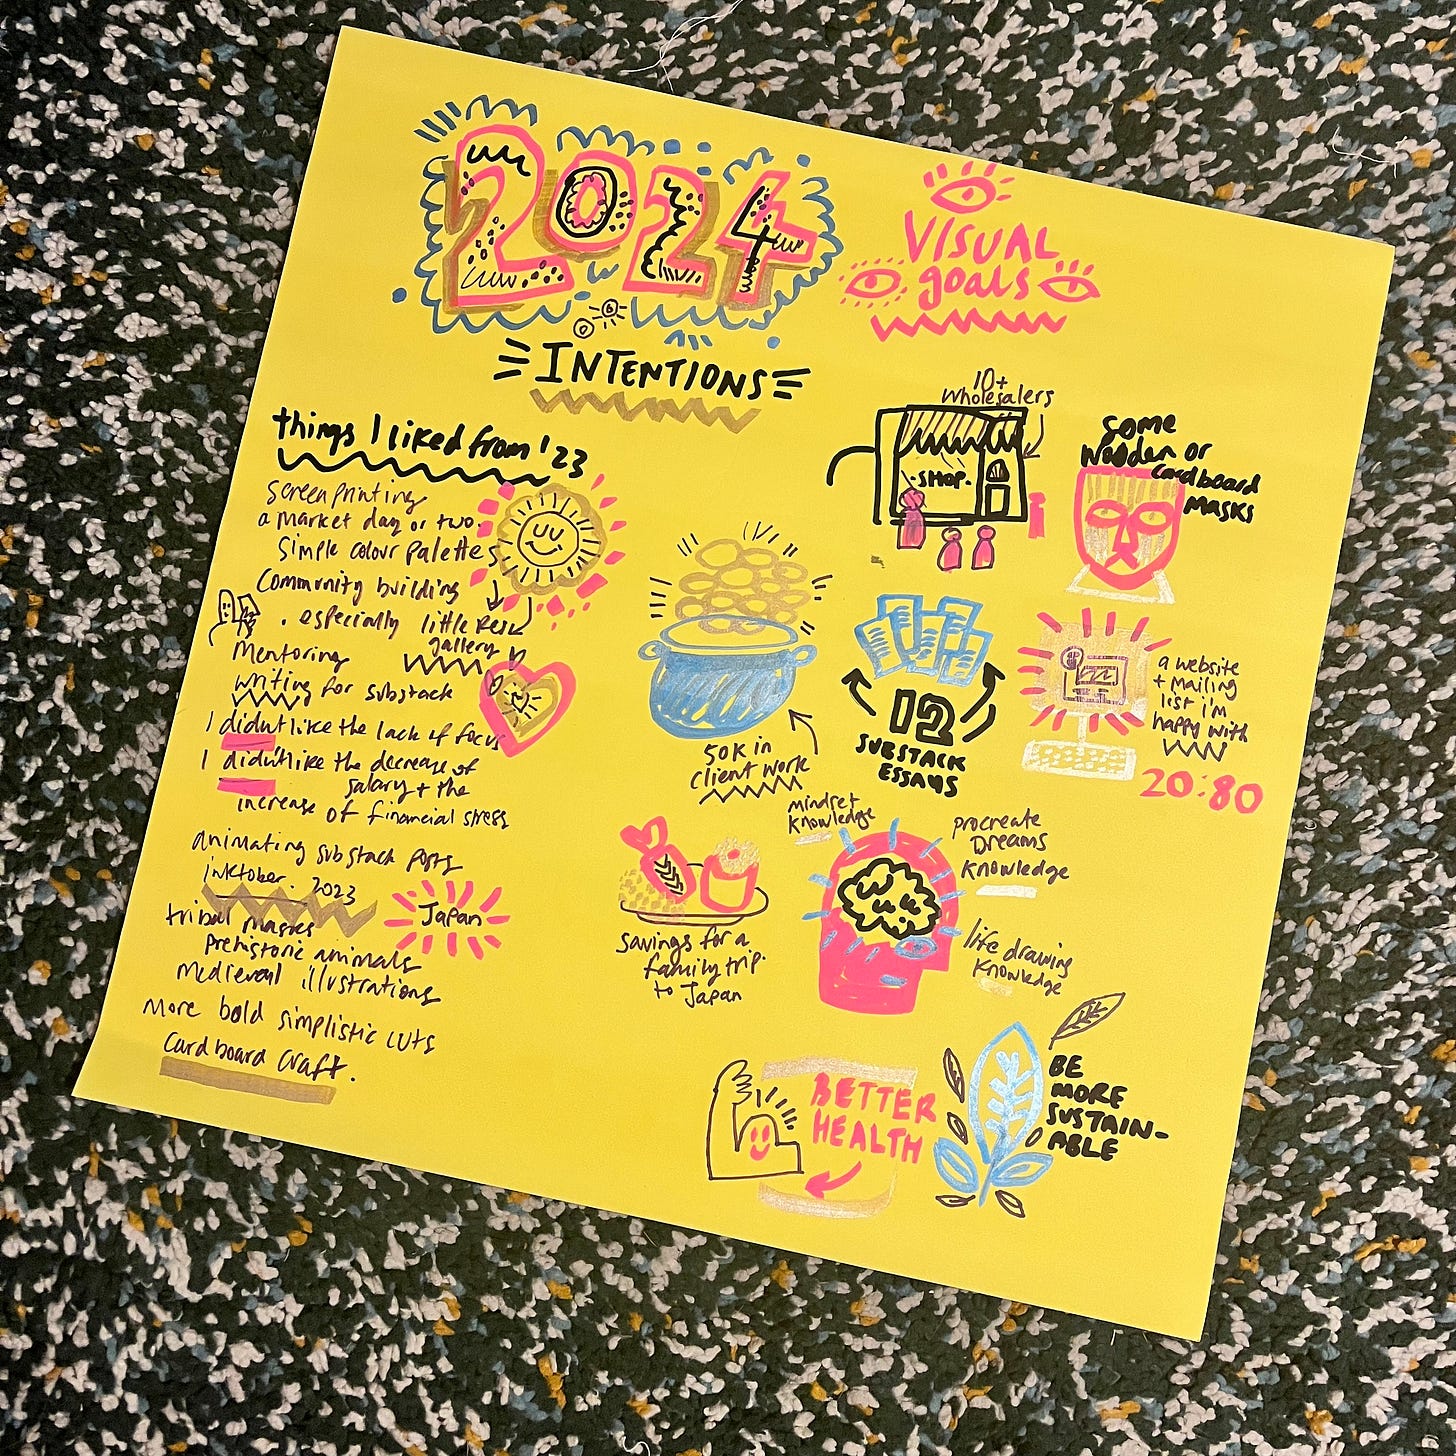 2024
INTENTIONS
VISUAL
goals
things I liked from '23
screenprinting
a market day or two.
simple colour palettes
Community building
. especially little
gallery
Mentoring
writing for substack
I didn't like the lack of focus
I didn't like the decrease of
salary + the
increase of financial stress
animating substack posts
inktober. 2023
tribal masks
Japan
prehistoric animals
Medieval illustrations
More bold simplistic cuts
Cardboard craft.
10+
wholesalers
.SHOP.
some
wooden or
cardboard
masks
50K in
client work
12
SUBSTACK
ESSAYS
a website
+ mailing
list i'm
happy with
20:80
mindset
knowledge
procreate
Dreams
knowledge
life drawing
knowledge
savings for a
family trip
to Japan
BETTER
HEALTH
BE
MORE
SUSTAIN-
ABLE